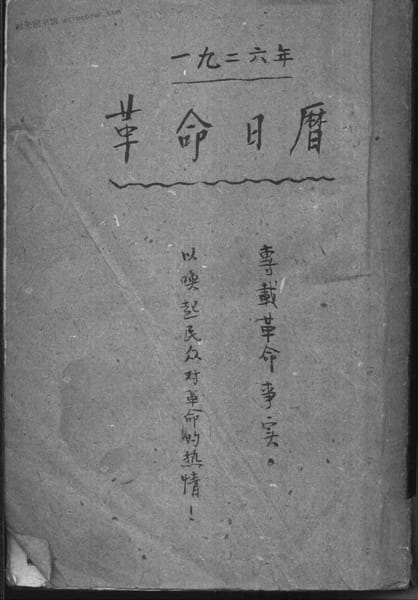 一九二六年
革命日暦
專載革命事实。
以唤起民众对革命的热情！